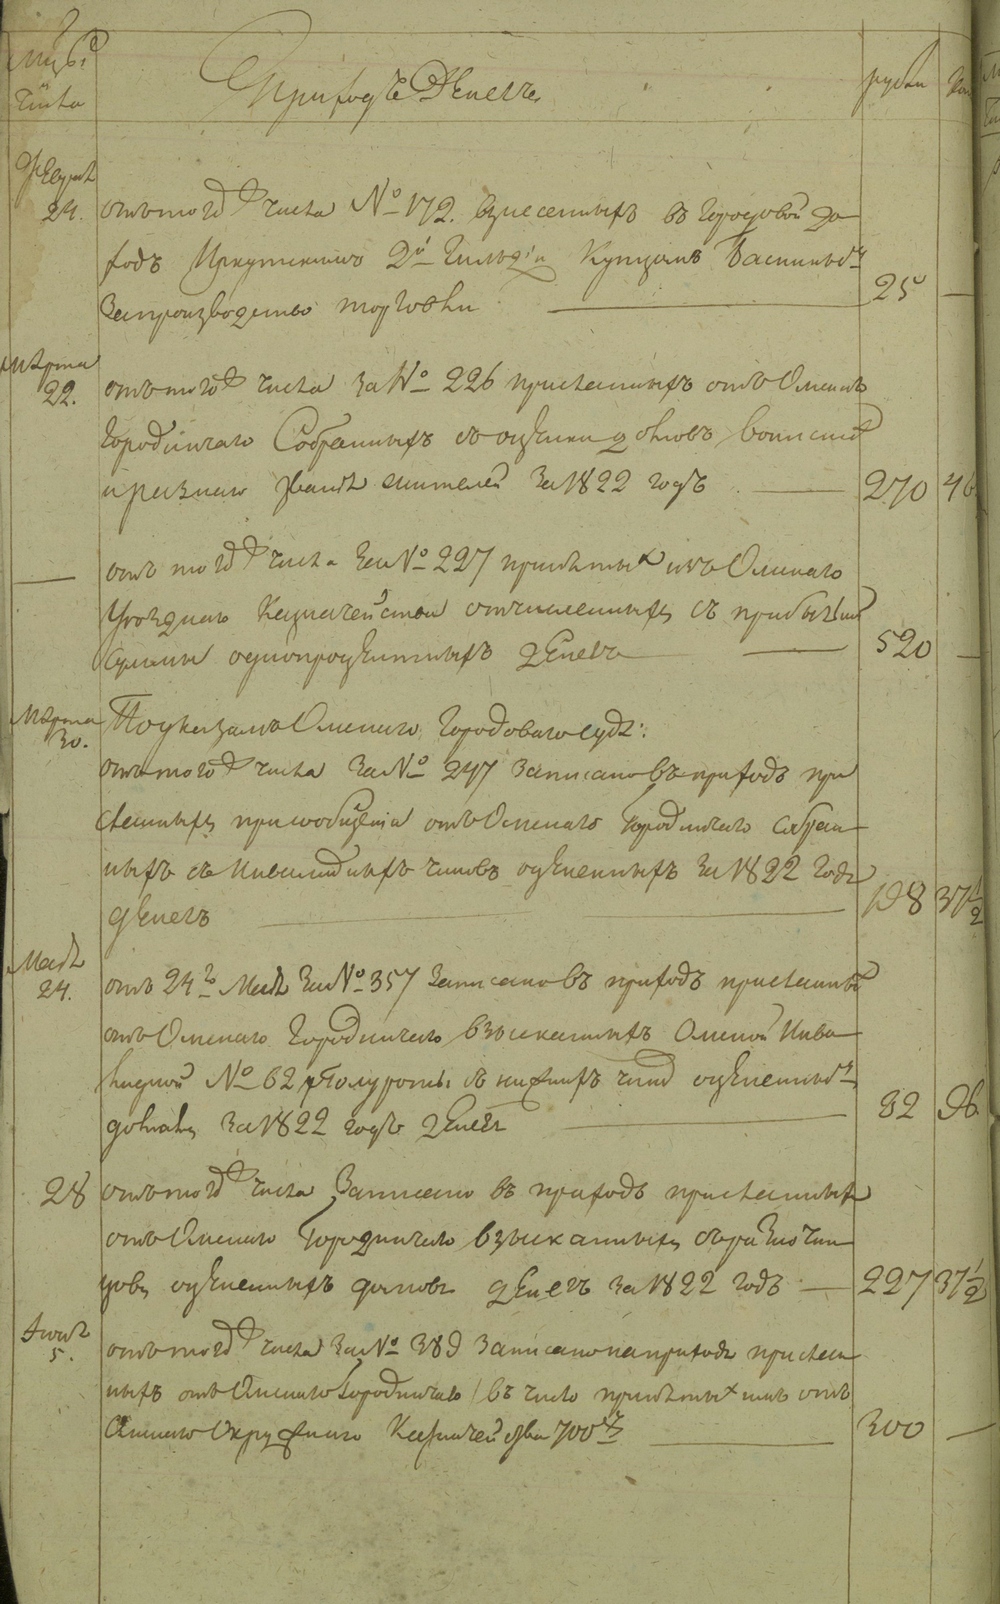 Мцы и числа
Приход Денегъ
рубли
коп
Февраля
24.
отъ того числа № 172. взнесенныхъ въ городовой до
ходъ Иркутскимъ 2й Гильдіи Купцомъ Баснинымъ
за производство торговли
25 —
Марта
22.
отъ того числа за № 226 присланныхъ отъ Омскаго
Городничаго Собранныхъ съ оценки домовъ воинскаго
и разнаго званія жителей за 1822 годъ
270 46
отъ того числа за № 227 принятыхъ изъ Омскаго
Уезднаго Казначейства отчисленныхъ съ
суммы однопроцентныхъ денегъ
520 —
Марта
30.
По указамъ Омскаго Городоваго суда:
отъ того числа за № 247 записано въ приходъ при
сланныхъ при сообщеніи отъ Омскаго Городничаго собран
ныхъ съ инвалидныхъ чиновъ оцененныхъ за 1822 годъ
денегъ
198 37½
Маія
24.
отъ 24го Маія за № 357 записано въ приходъ присланныхъ
отъ Омскаго Городничаго взысканныхъ Омской Инва
лидной № 62 Полуроты съ нижнихъ чиновъ оцененныхъ
домовъ за 1822 годъ денегъ
92 96
28
отъ того числа Записано въ приходъ присланныхъ
отъ Омскаго Городничаго взысканныхъ съ разночин
цовъ оцененныхъ домовъ денегъ за 1822 годъ
227 37½
Іюня
5.
отъ того числа за № 389 записано на приходъ прислан
ныхъ отъ Омскаго Городничаго въ число принятыхъ имъ отъ
Омскаго Окружнаго Казначейства 700хъ
300 —